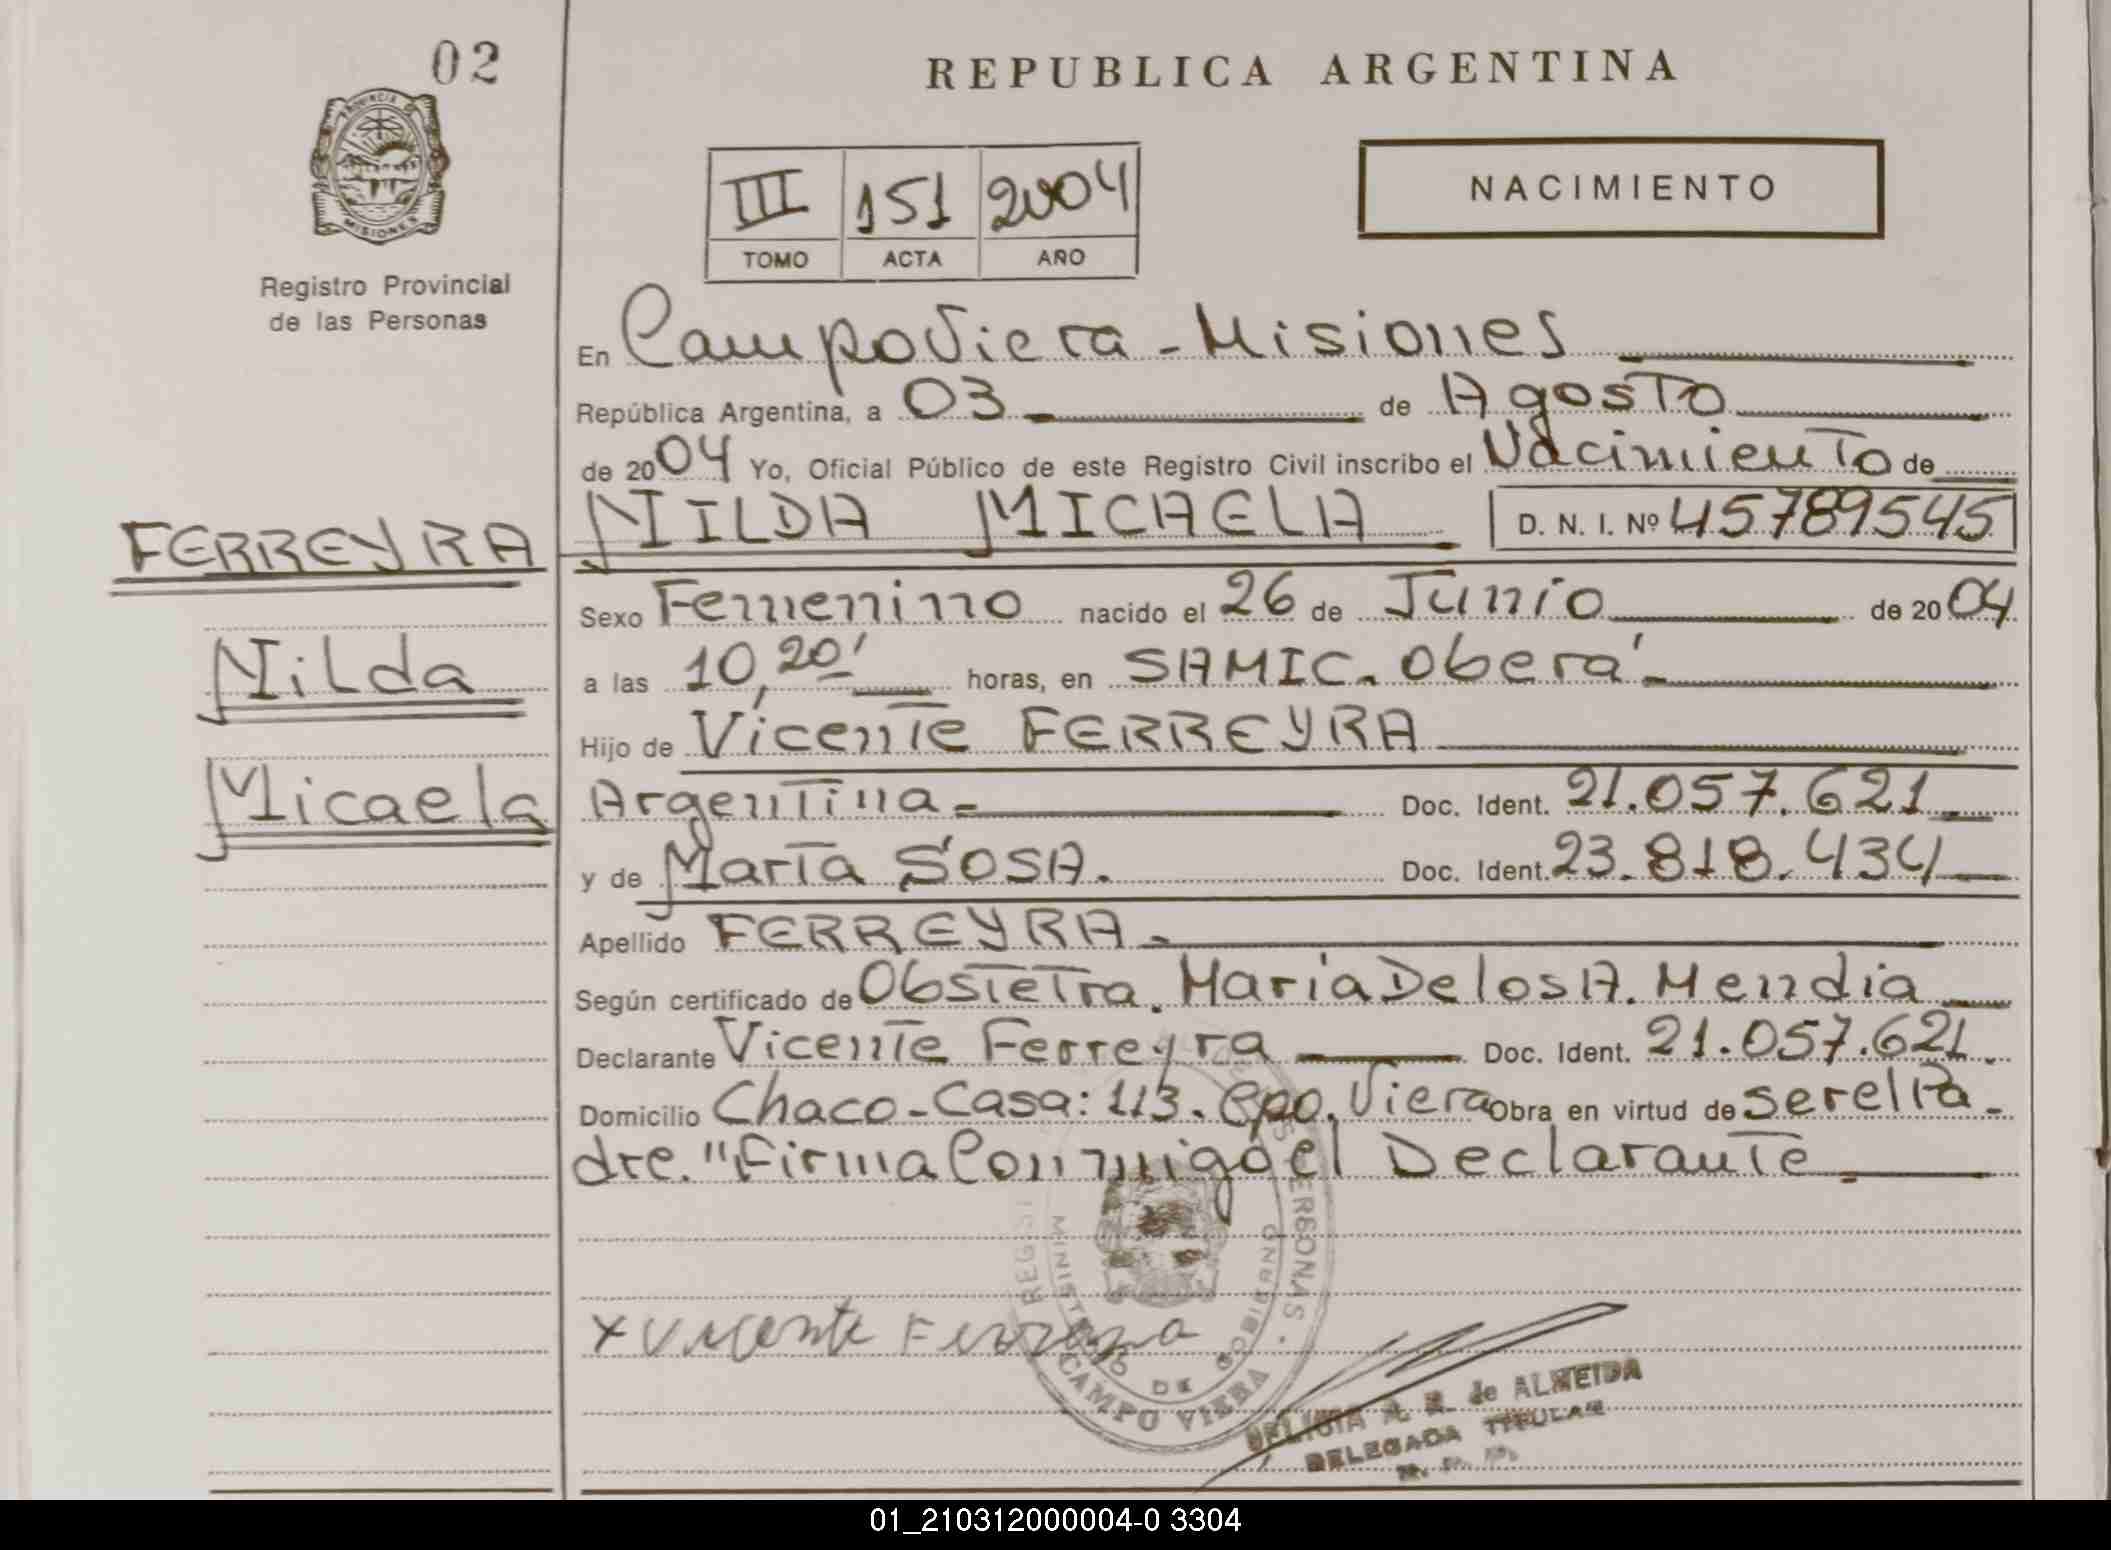 02
REPUBLICA ARGENTINA
PROVINCIA DE
MISIONES
Registro Provincial
de las Personas
III 151 2004
TOMO ACTA AÑO
NACIMIENTO
En Campo Viera - Misiones
República Argentina, a 03 de Agosto
de 2004 Yo, Oficial Público de este Registro Civil inscribo el Nacimiento de
FERREYRA NILDA MICAELA D. N. I. Nº 45789545
Sexo Femenino nacido el 26 de Junio de 2004
Nilda
a las 10,20' horas, en SAMIC. Oberá
Hijo de Vicente FERREYRA
Micaela
Argentina Doc. Ident. 21.057.621
y de Marta SOSA. Doc. Ident. 23.818.434
Apellido FERREYRA.
Según certificado de Obstetra. María De los A. Mendia
Declarante Vicente Ferreyra Doc. Ident. 21.057.621.
Domicilio Chaco-Casa: 113. Cpo. Viera Obra en virtud de ser el Pa-
dre. "Firma Conmigo el Declarante
x Vicente Ferreyra
PERSONAS
MINISTERIO DE GOBIERNO
CAMPO VIERA
de ALMEIDA
DELEGADA TITULAR
01_210312000004-0 3304